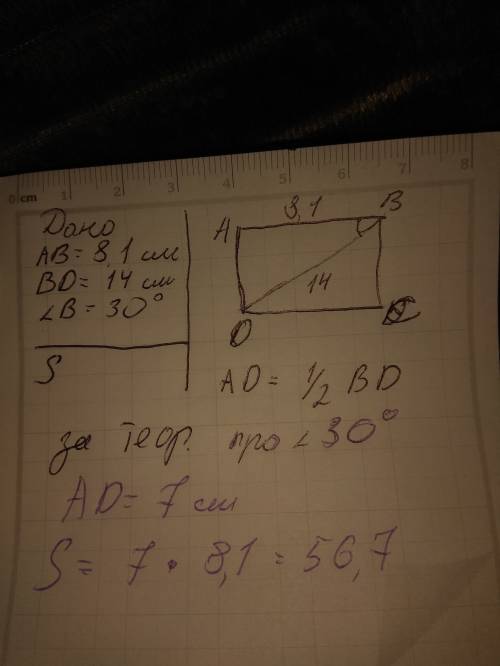 0 cm 1 2 3 4 5 6 7 8
Дано
AB = 8,1 см
BD = 14 см
∠B = 30°
S
8,1
A
B
14
D
C
AD = 1/2 BD
за теор. про ∠30°
AD = 7 см
S = 7 · 8,1 = 56,7